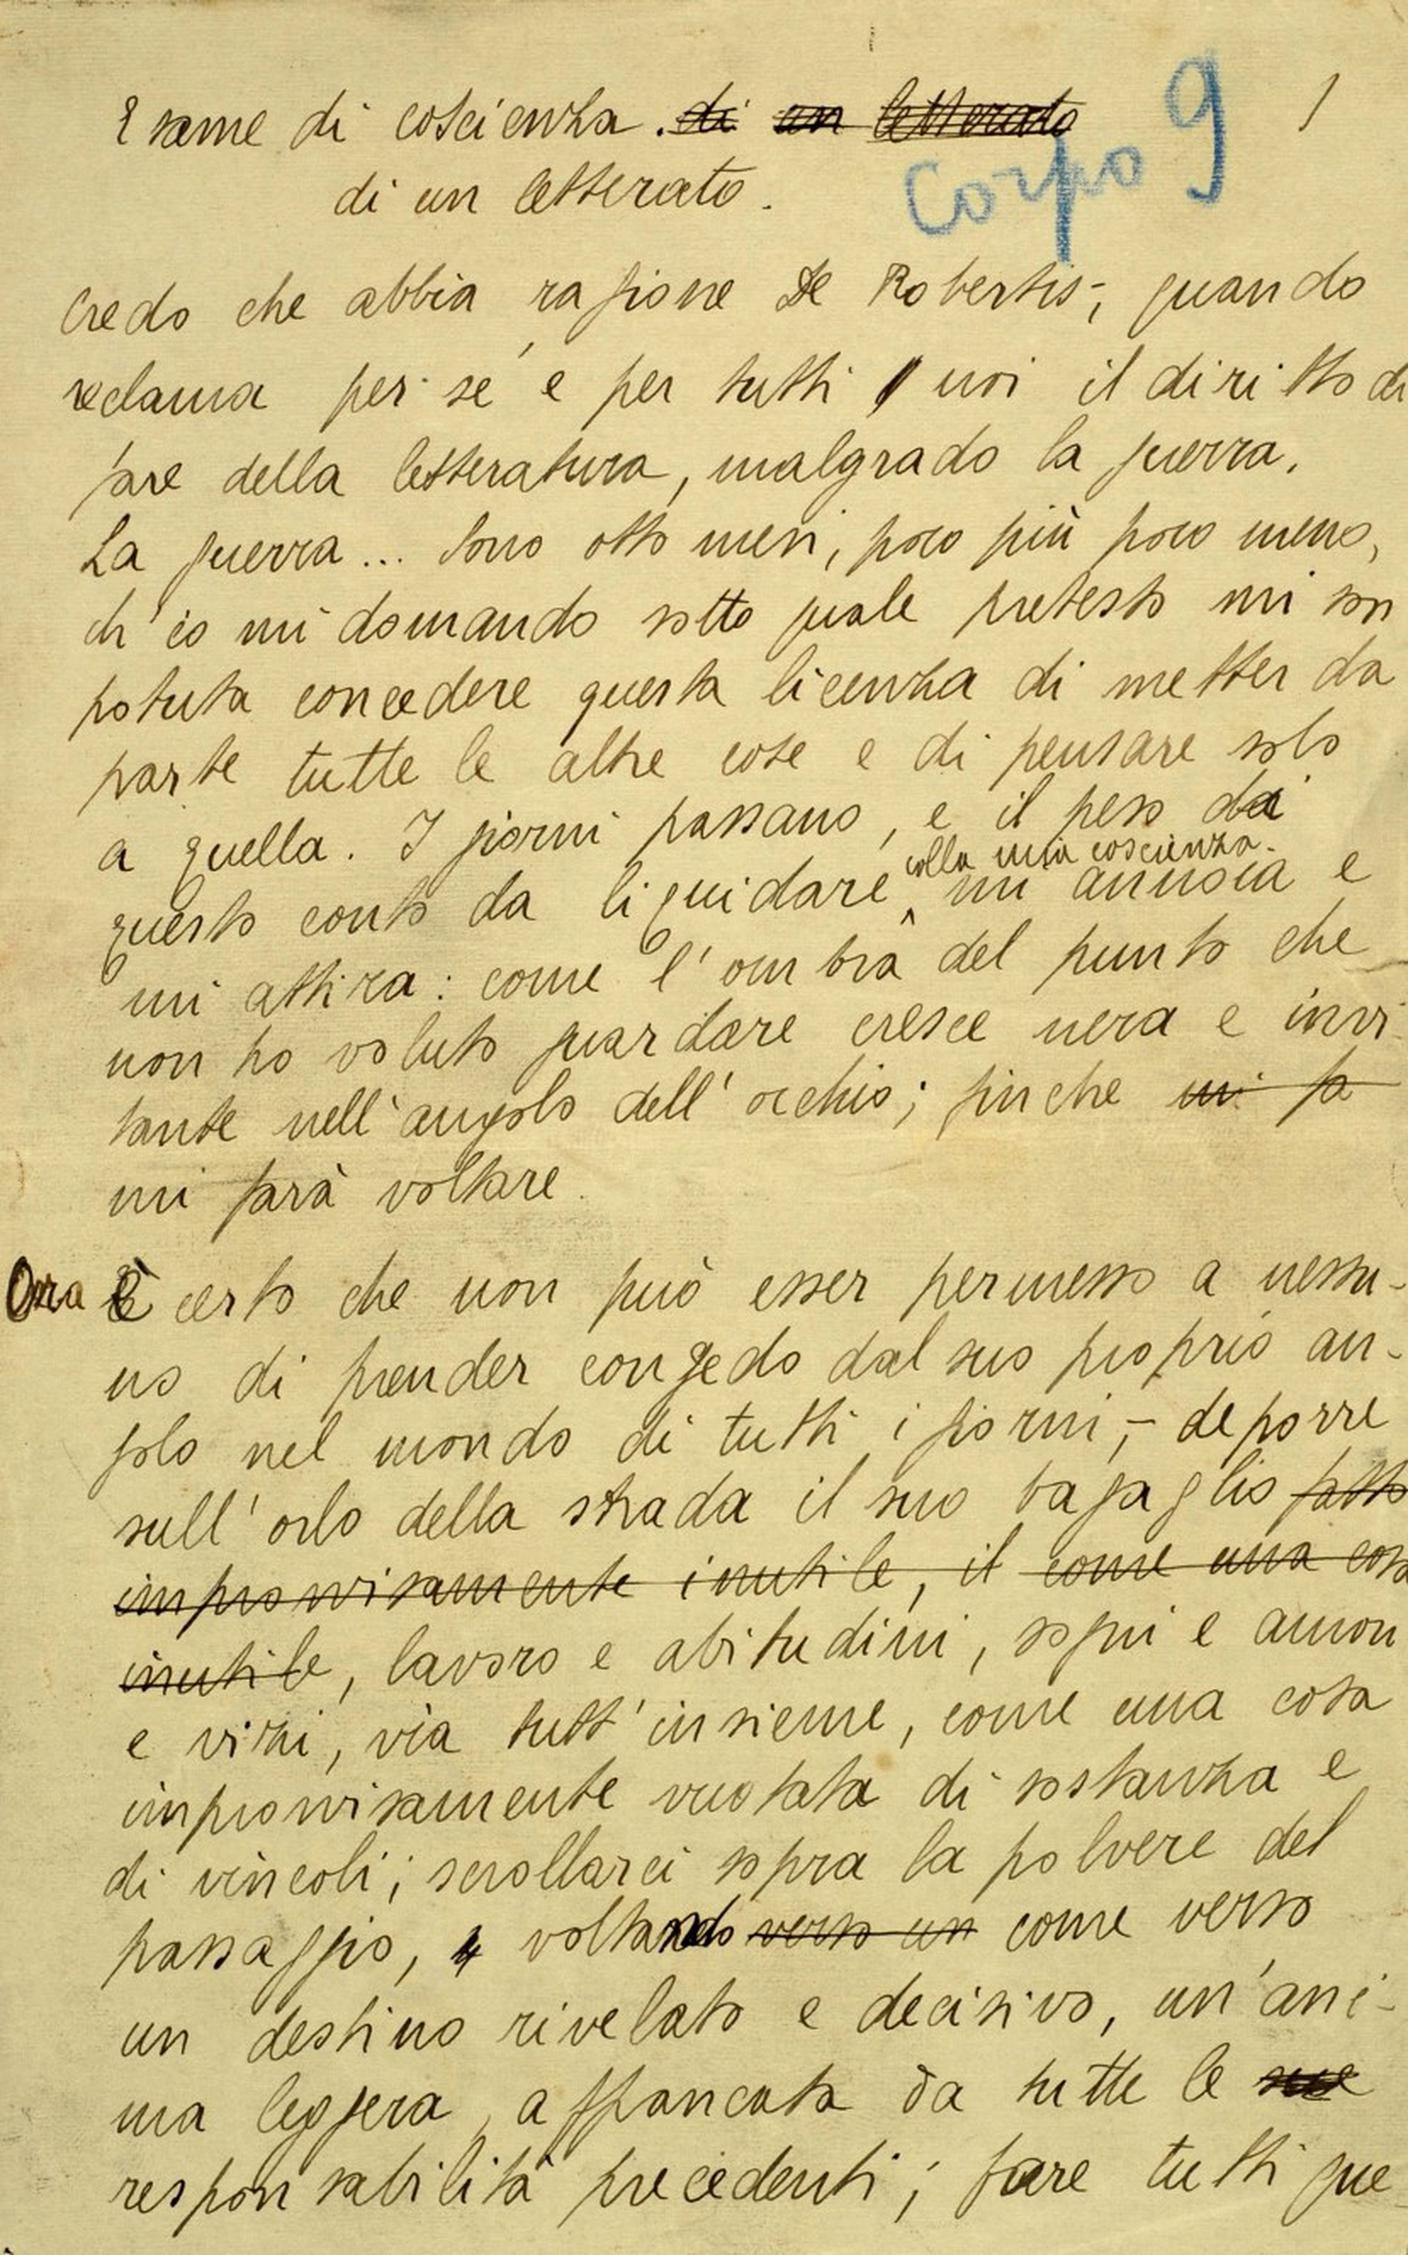 Esame di coscienza. di un letterato
Corpo 9
1
di un letterato.
Credo che abbia ragione De Robertis; quando
reclama per sé e per tutti noi il diritto di
fare della letteratura, malgrado la guerra.
La guerra... Sono otto mesi, poco più poco meno,
ch'io mi domando sotto quale pretesto mi son
potuta concedere questa licenza di metter da
parte tutte le altre cose e di pensare solo
a quella. I giorni passano, e il peso di
colla mia coscienza.
questo conto da liquidare mi annoia e
mi attira: come l'ombra del punto che
non ho voluto guardare cresce nera e invi-
tante nell'angolo dell'occhio; finche mi fa
mi farà voltare.
Ora è certo che non può esser permesso a nessu-
no di prender congedo dal suo proprio an-
golo nel mondo di tutti i giorni; - deporre
sull'orlo della strada il suo bagaglio fatto
improvvisamente inutile, il come una cosa
inutile, lavoro e abitudini, sogni e amori
e vizi, via tutt'insieme, come una cosa
improvvisamente vuotata di sostanza e
di vincoli; scrollarci sopra la polvere del
passaggio, voltando verso un come verso
un destino rivelato e decisivo, un'ani-
ma leggera, affrancata da tutte le sue
responsabilità precedenti; fare tutti que-